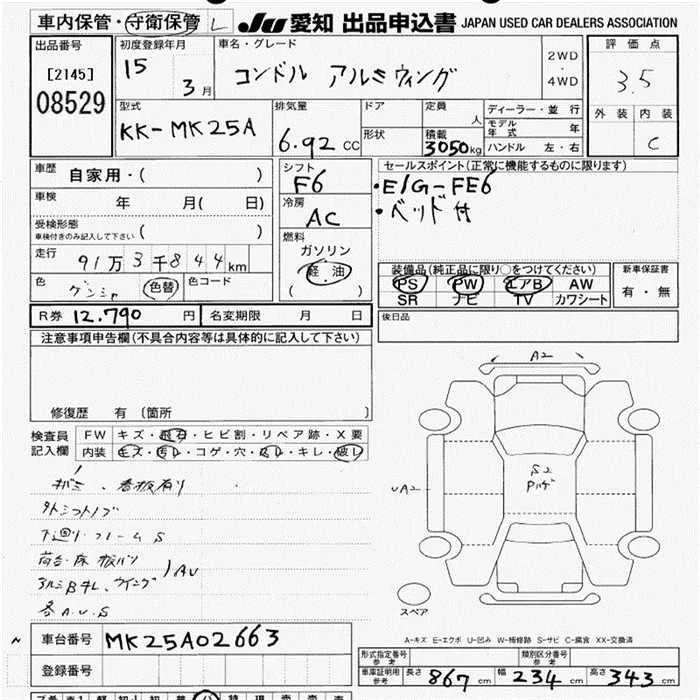 車内保管・守衛保管 L
JU 愛知 出品申込書 JAPAN USED CAR DEALERS ASSOCIATION
出品番号
[2145]
08529
初度登録年月
15
3月
車名・グレード
コンドル アルミウィング
2WD
・
4WD
評価点
3.5
外装 内装
C
型式
KK-MK25A
排気量
6.92 CC
ドア
形状
定員
人
積載
3050kg
ディーラー・並行
モデル年式 年
ハンドル 左・右
車歴
自家用・( )
車検
年 月( 日)
受検形態
車検付きのみ記入して下さい ( )
走行
91万3千844km
色
ゲンシャ 色替
色コード
シフト
F6
冷房
AC
燃料
ガソリン
軽・油
( )
セールスポイント(正常に機能するものに限ります)
・E/G-FE6
・ベッド付
装備品(純正品に限り○をつけてください)
PS PW エアB AW
SR ナビ TV カワシート
新車保証書
有・無
R券 12.790 円
名変期限 月 日
後日品
注意事項申告欄(不具合内容等は具体的に記入して下さい)
修復歴 有〔箇所 〕
検査員
記入欄
FW キズ・飛石・ヒビ割・リペア跡・X要
内装 キズ・汚レ・コゲ・穴・凸レ・キレ・破レ
看板有り
外シフトノブ
下廻り・フレーム S
荷台・床板バリ
アルミB キレ、ウイング
AU
各A.U.S
A2
UA2
S2
Pハゲ
スペア
A-キズ E-エクボ U-凹み W-補修跡 S-サビ C-腐食 XX-交換済
車台番号 MK25A02663
登録番号
型式指定番号
参考
類別区分番号
参考
車庫証明用
参考
長さ 867cm 幅 234cm 高さ 343cm